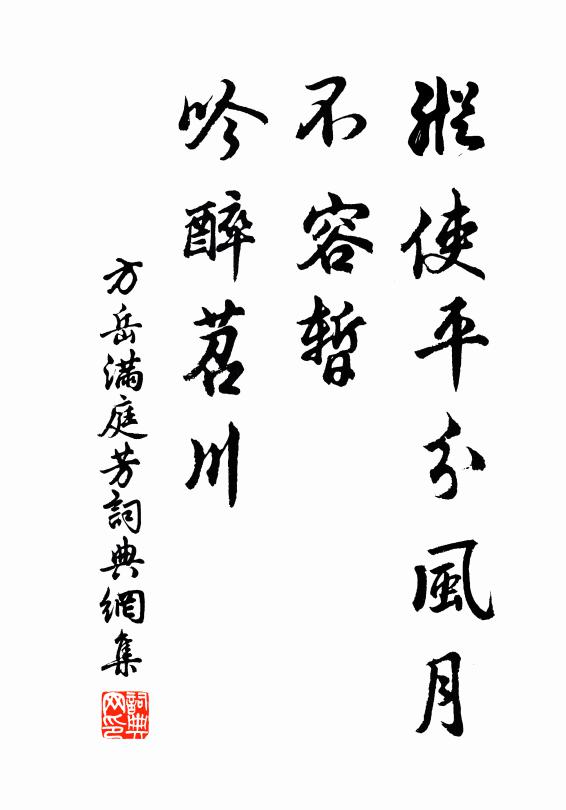 縱使平分風月
不容暫
吟醉苕川
方岳滿庭芳詞典網集
詞典网印